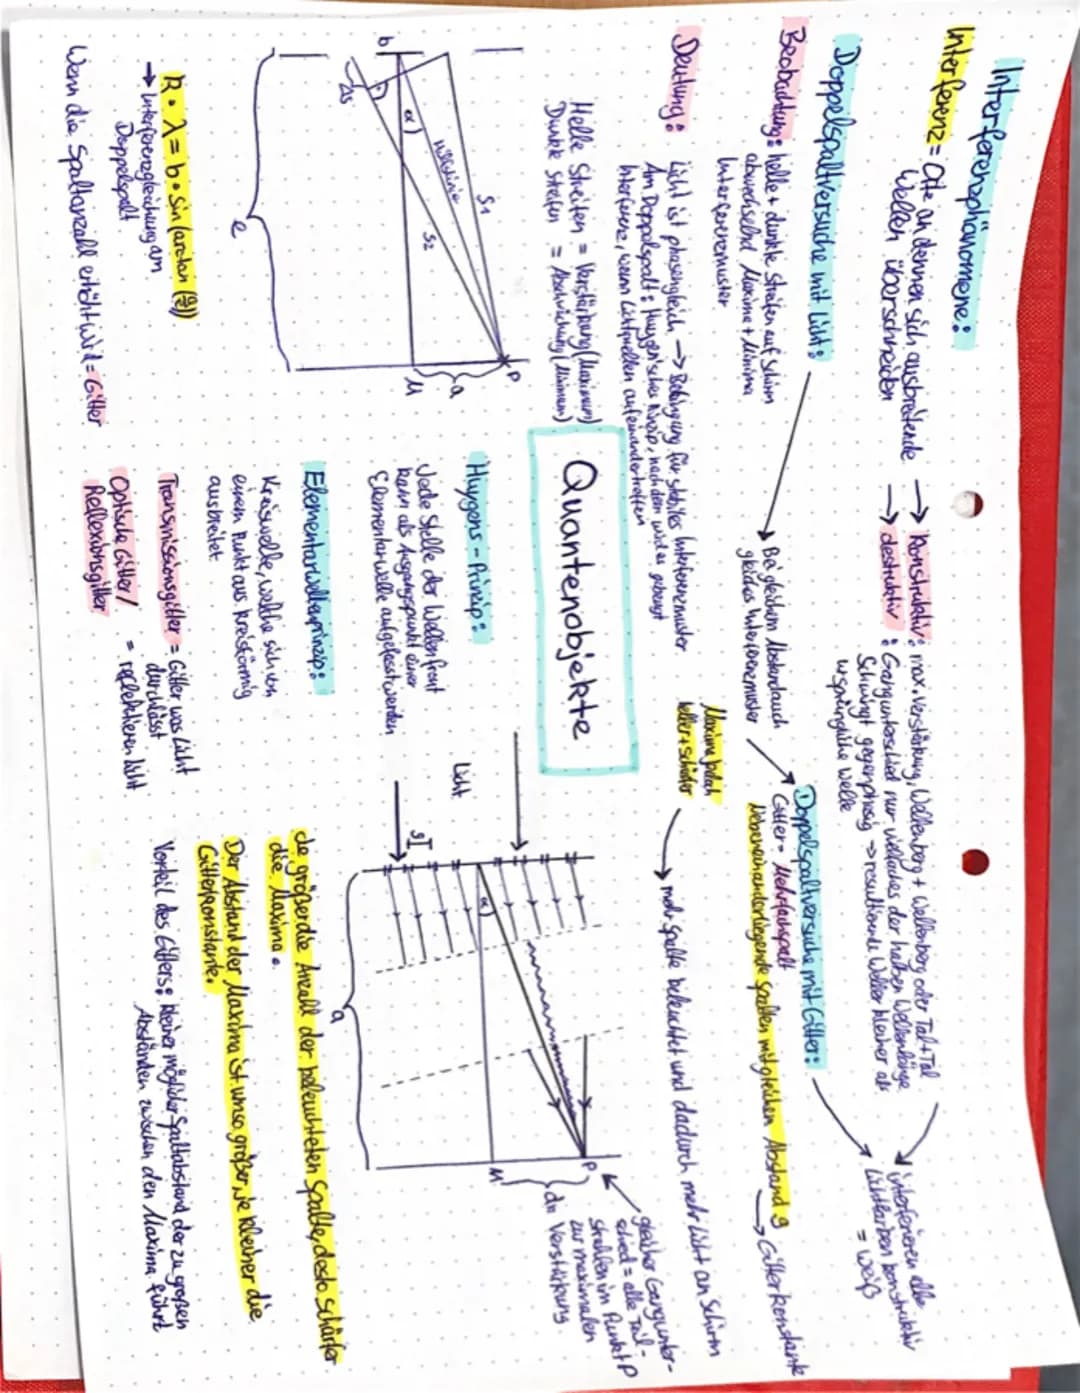 Interferenzphänomene:
Interferenz = Orte an dennen sich ausbreitende
Wellen überschneiden
→ Konstruktiv: max. Verstärkung, Wellenberg + Wellenberg oder Tal+Tal
→ destruktiv: Gangunterschied nur vielfaches der halben Wellenlänge
Schwingt gegenphasig → resultierende Welle kleiner als
ursprüngliche Welle
interferieren alle
Lichtfarben konstruktiv
= weiß
Doppelspaltversuche mit Licht:
Beobachtung: helle + dunkle Streifen auf Schirm
abwechselnd Maxima + Minima
Interferenzmuster
Bei gleichem Abstand auch
gleiches Interferenzmuster
Doppelspaltversuche mit Gitter:
Gitter = Mehrfachspalt
Nebeneinanderliegende Spalten mit gleichen Abstand g
→ Gitterkonstante
Deutung: Licht ist phasengleich → Bedingung für stabiles Interferenzmuster
Am Doppelspalt: Huygen'sches Prinzip, nach dem wird es gebeugt
Interferenz, wenn Lichtquellen aufeinandertreffen
Maxima jedoch
heller + schärfer
→ mehr Spalte beleuchtet und dadurch mehr Licht an Schirm
Helle Streifen = Verstärkung (Maximum)
Dunkle Streifen = Abschwächung (Minimum)
Quantenobjekte
gleicher Gangunter-
schied = alle Teil-
strahlen im Punkt P
zur maximalen
Verstärkung
b
Δs
α
Mittellinie
S1
S2
P
a
M
e
Huygens-Prinzip:
Jede Stelle der Wellenfront
kann als Ausgangspunkt einer
Elementarwelle aufgefasst werden
Elementarwellenprinzip:
Kreiswelle, welche sich von
einem Punkt aus kreisförmig
ausbreitet
Licht
g
α
P
M
dn
a
k · λ = b · sin (arctan (a/e))
→ Interferenzgleichung am
Doppelspalt
Wenn die Spaltanzahl erhöht wird = Gitter
Transmissionsgitter = Gitter was Licht
durchlässt
Optische Gitter/
Reflexionsgitter
= reflektieren Licht
Je größer die Anzahl der beleuchteten Spalte, desto schärfer
die Maxima.
Der Abstand der Maxima ist umso größer, je kleiner die
Gitterkonstante.
Vorteil des Gitters: kleiner möglicher Spaltabstand der zu großen
Abständen zwischen den Maxima führt